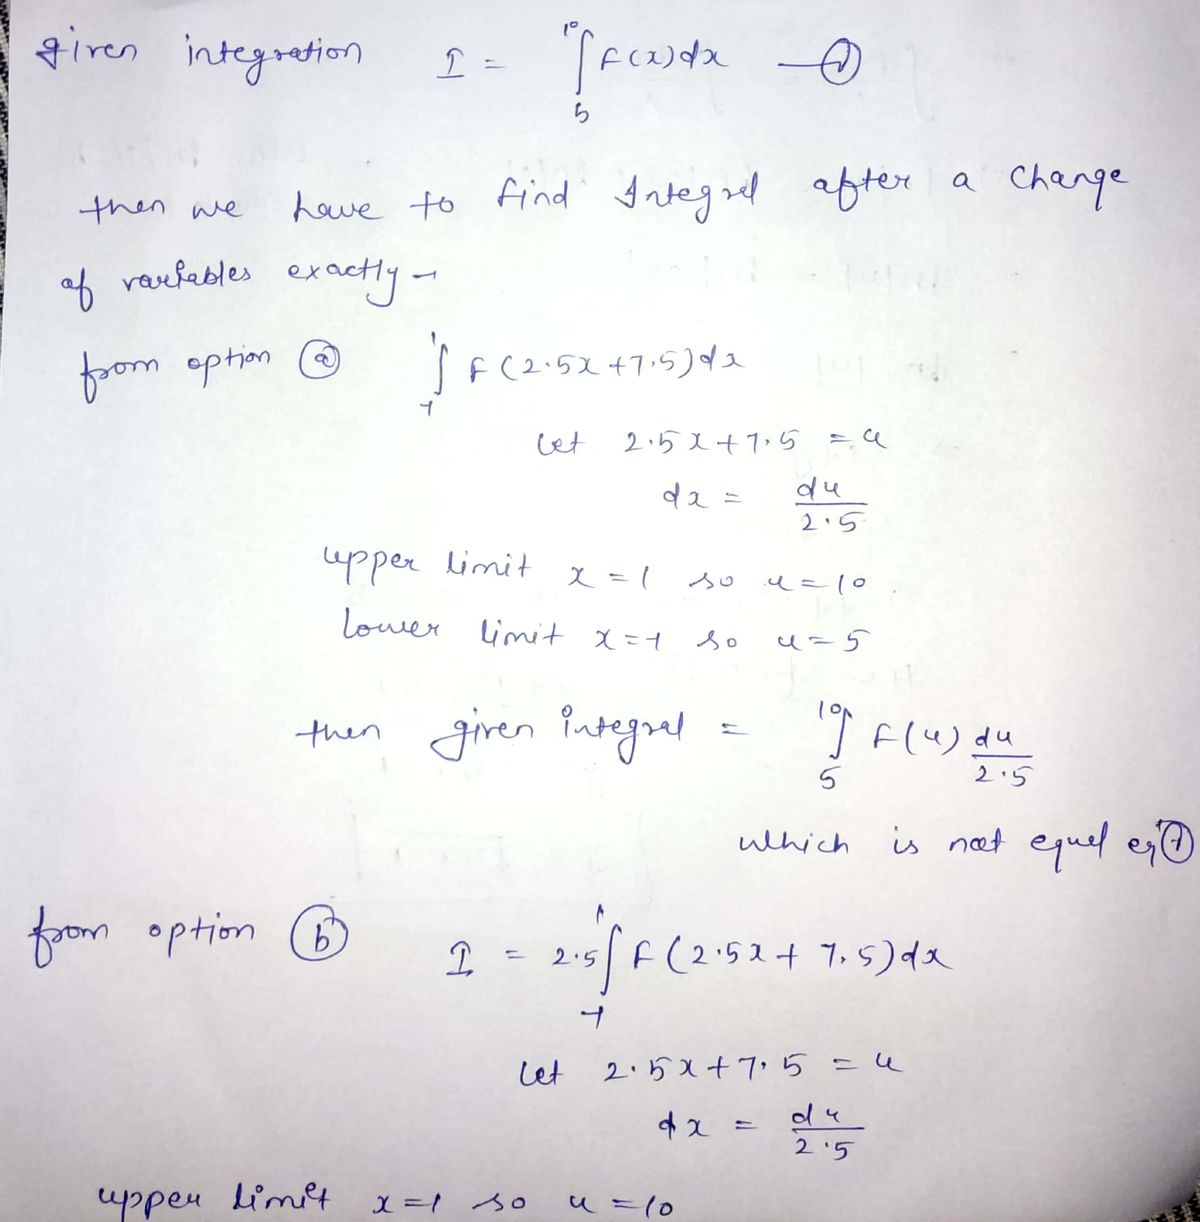 given integration I = ∫₅¹⁰ f(x)dx —①
then we have to find Integral after a change
of variables exactly -
from option ⓐ ∫₋₁¹ f(2.5x+7.5)dx
Let 2.5x+7.5 = u
dx = du/2.5
upper limit x=1 so u=10
Lower limit x=-1 so u=5
then given integral = ∫₅¹⁰ f(u) du/2.5
which is not equal eqⁿ①
from option ⓑ I = 2.5∫₋₁¹ f(2.5x+7.5)dx
Let 2.5x+7.5 = u
dx = du/2.5
upper limit x=1 so u=10